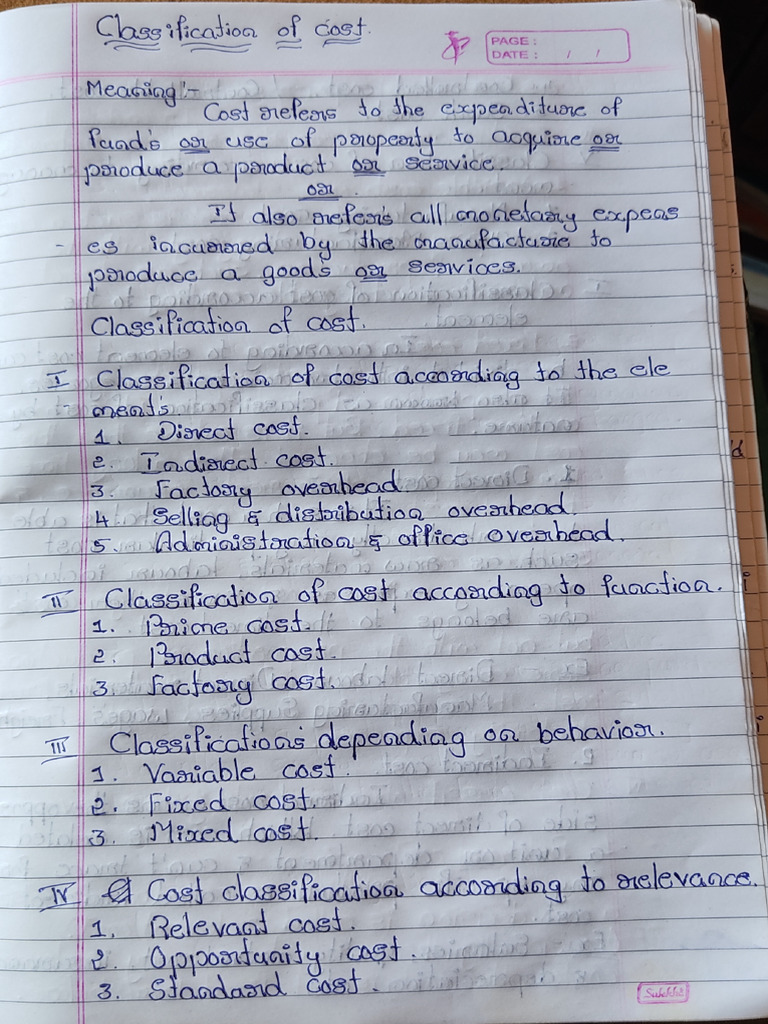 Classification of cost.
PAGE :
DATE : / /
Meaning :-
Cost refers to the expenditure of
fund's or use of property to acquire or
produce a product or service.
or.
It also refer's all monetary expens
- es incurred by the manufacture to
produce a good's or services.
Classification of cost.
I Classification of cost according to the ele
- ment's.
1. Direct cost.
2. Indirect cost.
3. Factory overhead
4 Selling & distribution overhead.
5. Administration & office overhead.
II Classification of cost according to function.
1. Prime cost.
2. Product cost.
3. Factory cost.
III Classification's depending on behavior.
1. Variable cost.
2. Fixed cost
3. Mixed cost.
IV Cost classification according to relevance.
1. Relevant cost.
2. Opportunity cost.
3. Standard cost.